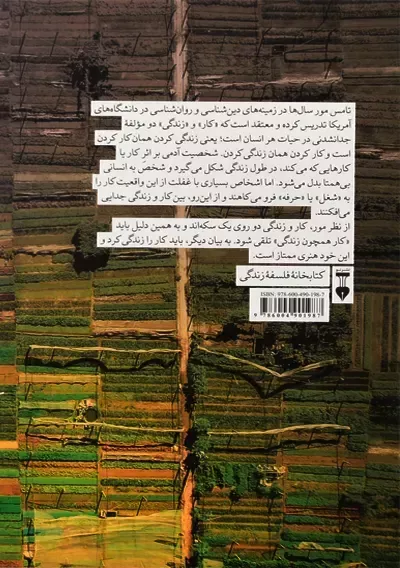 تامس مور سال‌ها در زمینه‌های دین‌شناسی و روان‌شناسی در دانشگاه‌های
آمریکا تدریس کرده و معتقد است که «کار» و «زندگی» دو مؤلفهٔ
جدانشدنی در حیات هر انسان است؛ یعنی زندگی کردن همان کار کردن
است و کار کردن همان زندگی کردن. شخصیت آدمی بر اثرِ کار یا
کارهایی که می‌کند، در طول زندگی شکل می‌گیرد و شخص به انسانی
بی‌همتا بدل می‌شود. اما اشخاص بسیاری با غفلت از این واقعیت کار را
به «شغل» یا «حرفه» فرو می‌کاهند و از این‌رو، بین کار و زندگی جدایی
می‌افکنند.
از نظر مور، کار و زندگی دو روی یک سکه‌اند و به همین دلیل باید
«کار همچون زندگی» تلقی شود. به بیان دیگر، باید کار را زندگی کرد و
این خود هنری ممتاز است.
کتابخانهٔ فلسفهٔ زندگی
ISBN: 978-600-490-198-7
9 786004 901987